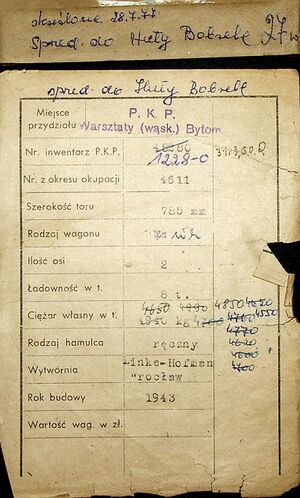 skreślono 28.7.77
Sprzed. do Huty Bobrek
sprzed. do Huty Bobrek
Miejsce przydziału P. K. P.
Warsztaty (wąsk.) Bytom
Nr. inwentarz P.K.P. 1228-0
Nr. z okresu okupacji 4611
Szerokość toru 785 mm
Rodzaj wagonu wózk
Ilość osi 2
Ładowność w t. 8 t.
4650 4990 4850 4620
Ciężar własny w t. kg 4760 4550
4770
4620
4600
Rodzaj hamulca ręczny
Wytwórnia Linke-Hofman
Wrocław
Rok budowy 1943
Wartość wag. w zł.